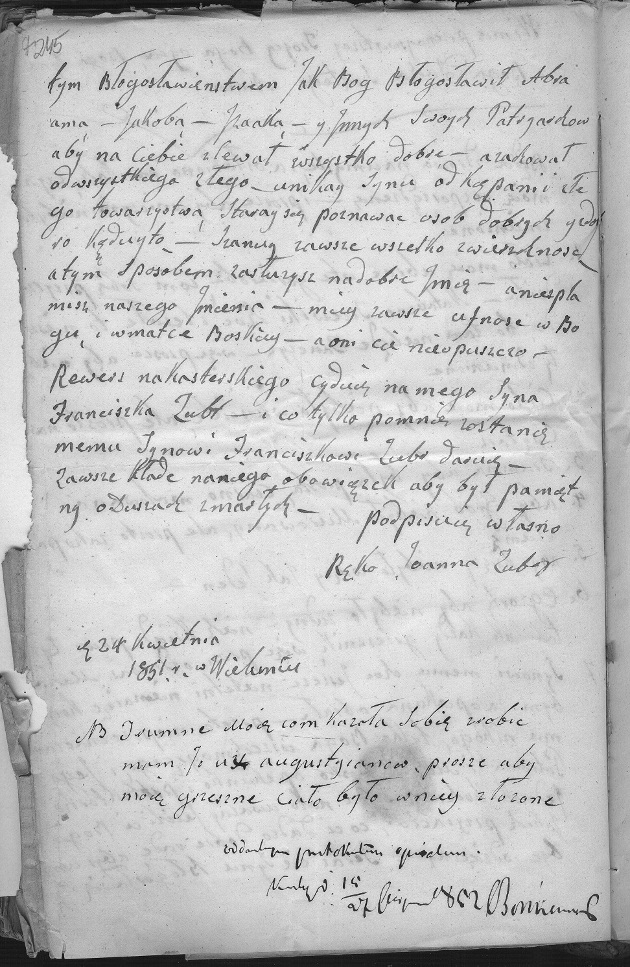 245
tym Błogosławienstwem Jak Bog Błogosławił Abra
ama – Jakoba – Izaaka – y Jnnych Swoych Patryardow
aby na Ciebie zlewał wszystko dobre – a radował
odwszystkiego złego – unikay Synu od Kąpani i złe
go towarzystwa, Staray się poznawac osob dobrych y
– Szanuy zawsze wszelko zwierzchnosc
a tym Sposobem zasłuzysz na dobre Jmię – a niespla
misz naszego Jmienia – miey zawsze ufnosc w Bo
gu, i w matce Boskiey – a oni cie nieopuszczo –
Rewers na Kasterskiego cyduię na mego Syna
Franciszka Zubr – i co tylko pomnię zostanię
memu Synowi Franciszkowi Zubr daruię –
Zawsze kładę naniego obowiązek aby był pamięt
ny o Duszach zmarłych – podpisuię własno
Ręko Joanna Zubr
24 Kwietnia
1851 r. w Wieluniu
NB Trumne Moię com Kazała Sobię zrobic
mam Jo u augustyianow, prosze aby
moię grzeszne Ciało było w niey złozone
15/27 1852